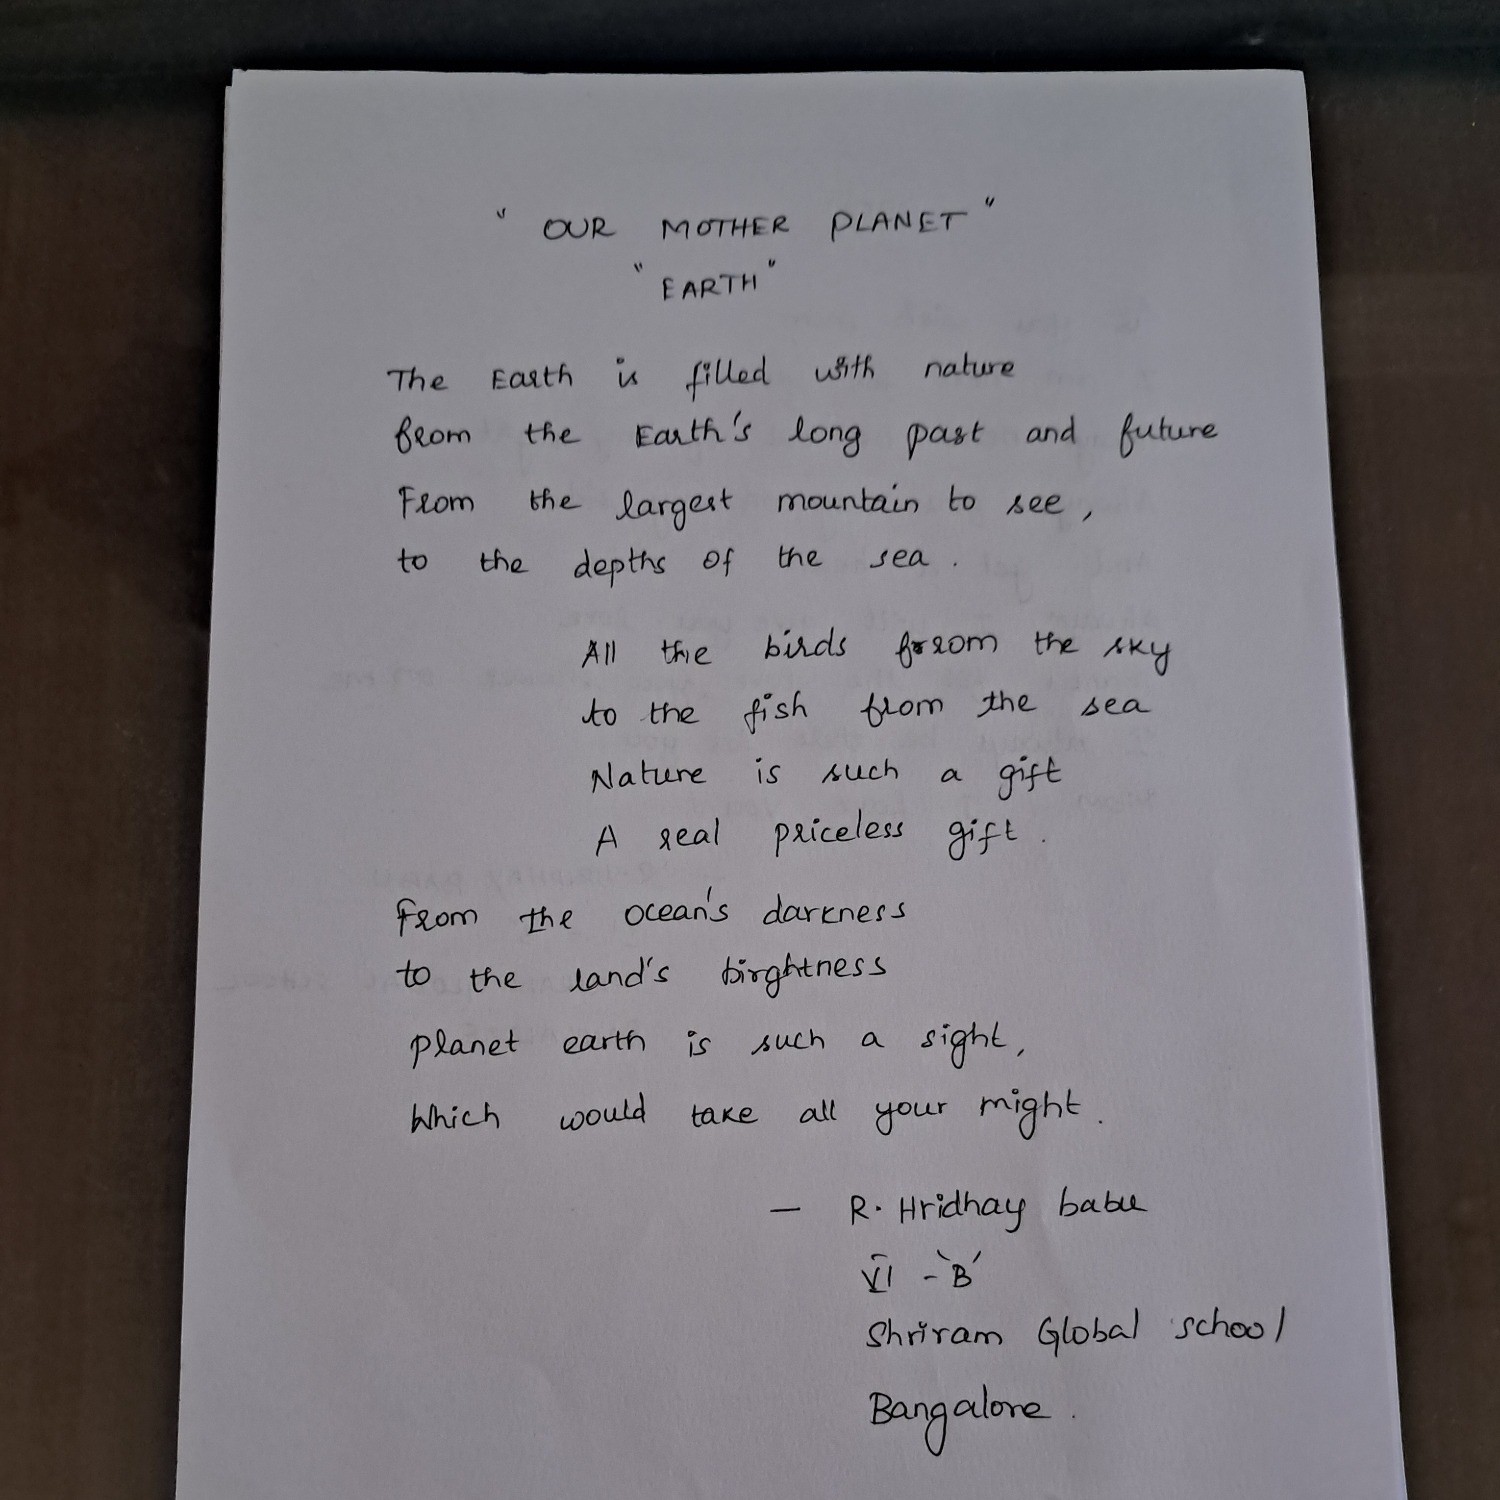 " OUR MOTHER PLANET "
" EARTH "
The Earth is filled with nature
from the Earth's long past and future
From the largest mountain to see ,
to the depths of the sea .
All the birds from the sky
to the fish from the sea
Nature is such a gift
A real priceless gift .
From the ocean's darkness
to the land's birghtness
planet earth is such a sight ,
Which would take all your might .
— R. Hridhay babu
VI - 'B'
Shriram Global school
Bangalore .